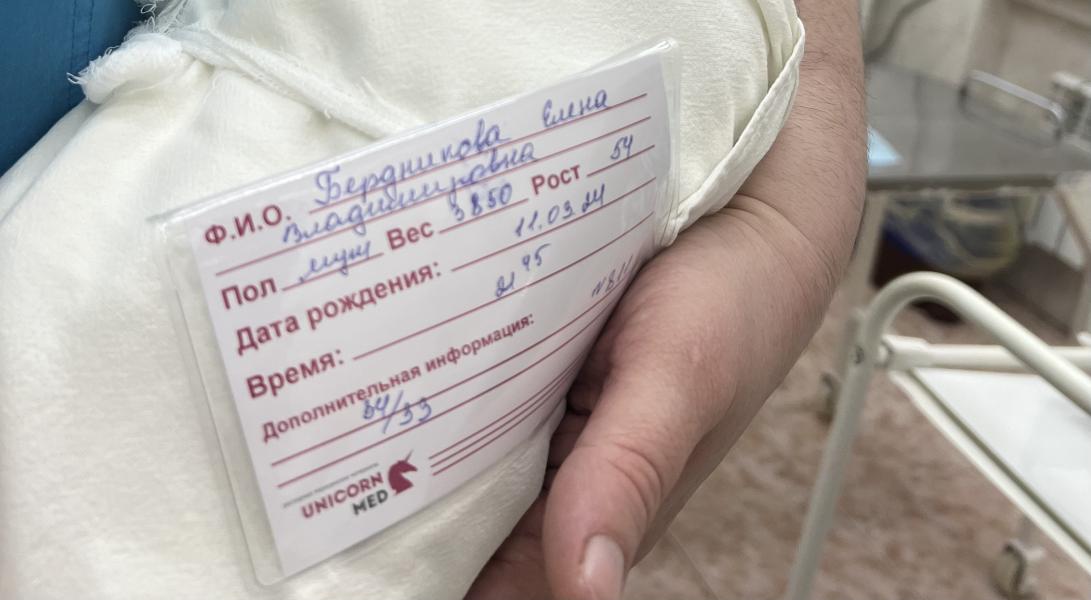 Ф.И.О. Бердникова Елена
Владимировна
Пол муж Вес 3850 Рост 54
Дата рождения: 11.03.24
Время: 21 45
Дополнительная информация:
34/33
UNICORN
MED